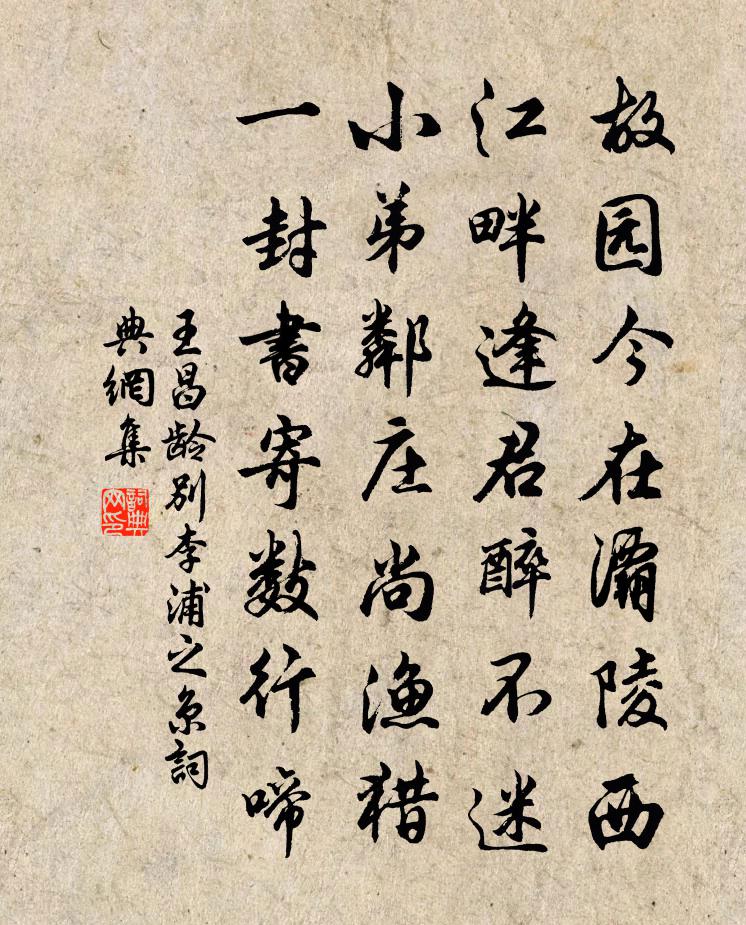 故园今在灞陵西
江畔逢君醉不迷
小弟鄰庄尚漁猎
一封書寄数行啼
王昌龄别李浦之京詞
典網集
詞典网印